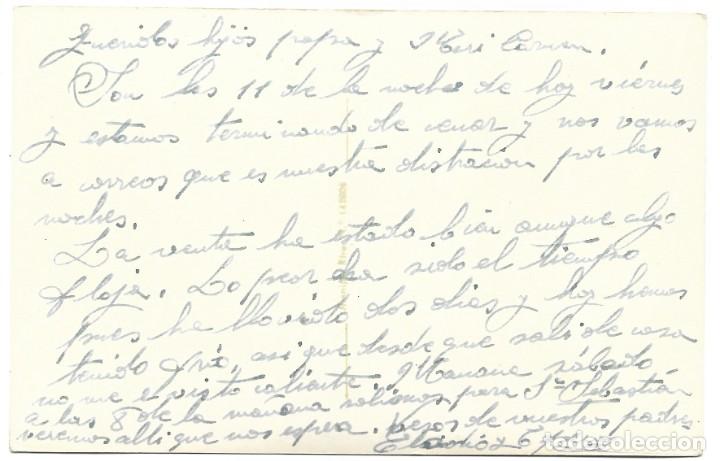 Queridos hijos papa y Mari Carmen.
Son las 11 de la noche de hoy viernes
y estamos terminando de cenar y nos vamos
a correos que es nuestra distracion por las
noches.
La venta ha estado bien aunque algo
floja. Lo peor ha sido el tiempo
pues ha llovido dos dias y hoy hemos
tenido frio, asi que desde que sali de casa
no me e visto caliente. Manana sábado
a las 8 de la mañana salimos para Sn Sebastián
veremos alli que nos espera. Besos de vuestros padres
todocoleccion